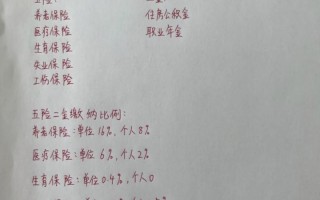 养老保险 住房公积金
医疗保险 职业年金
生育保险
失业保险
工伤保险
五险二金缴纳比例:
养老保险:单位16%,个人8%
医疗保险:单位6%,个人2%
生育保险:单位0.4%,个人0